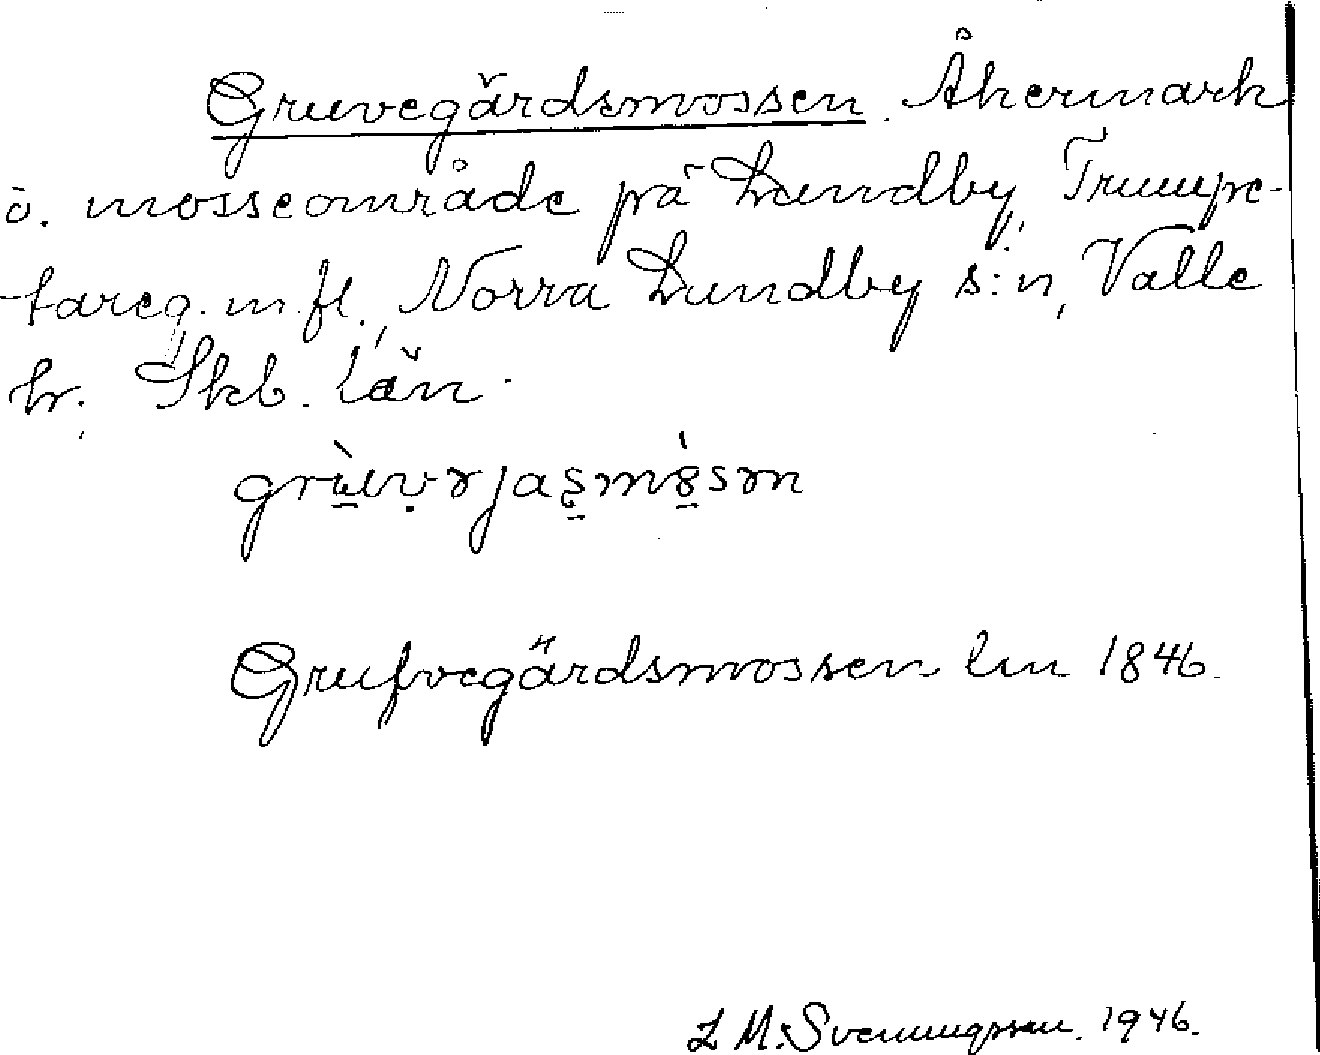 Gruvegärdsmossen. Åkermark
o. mosseområde på Lundby, Trumpe-
tareg. m.fl., Norra Lundby s:n, Valle
hr. Skb. län.
Grufvegärdsmossen lm 1846.
L M. Svenungsson. 1946.